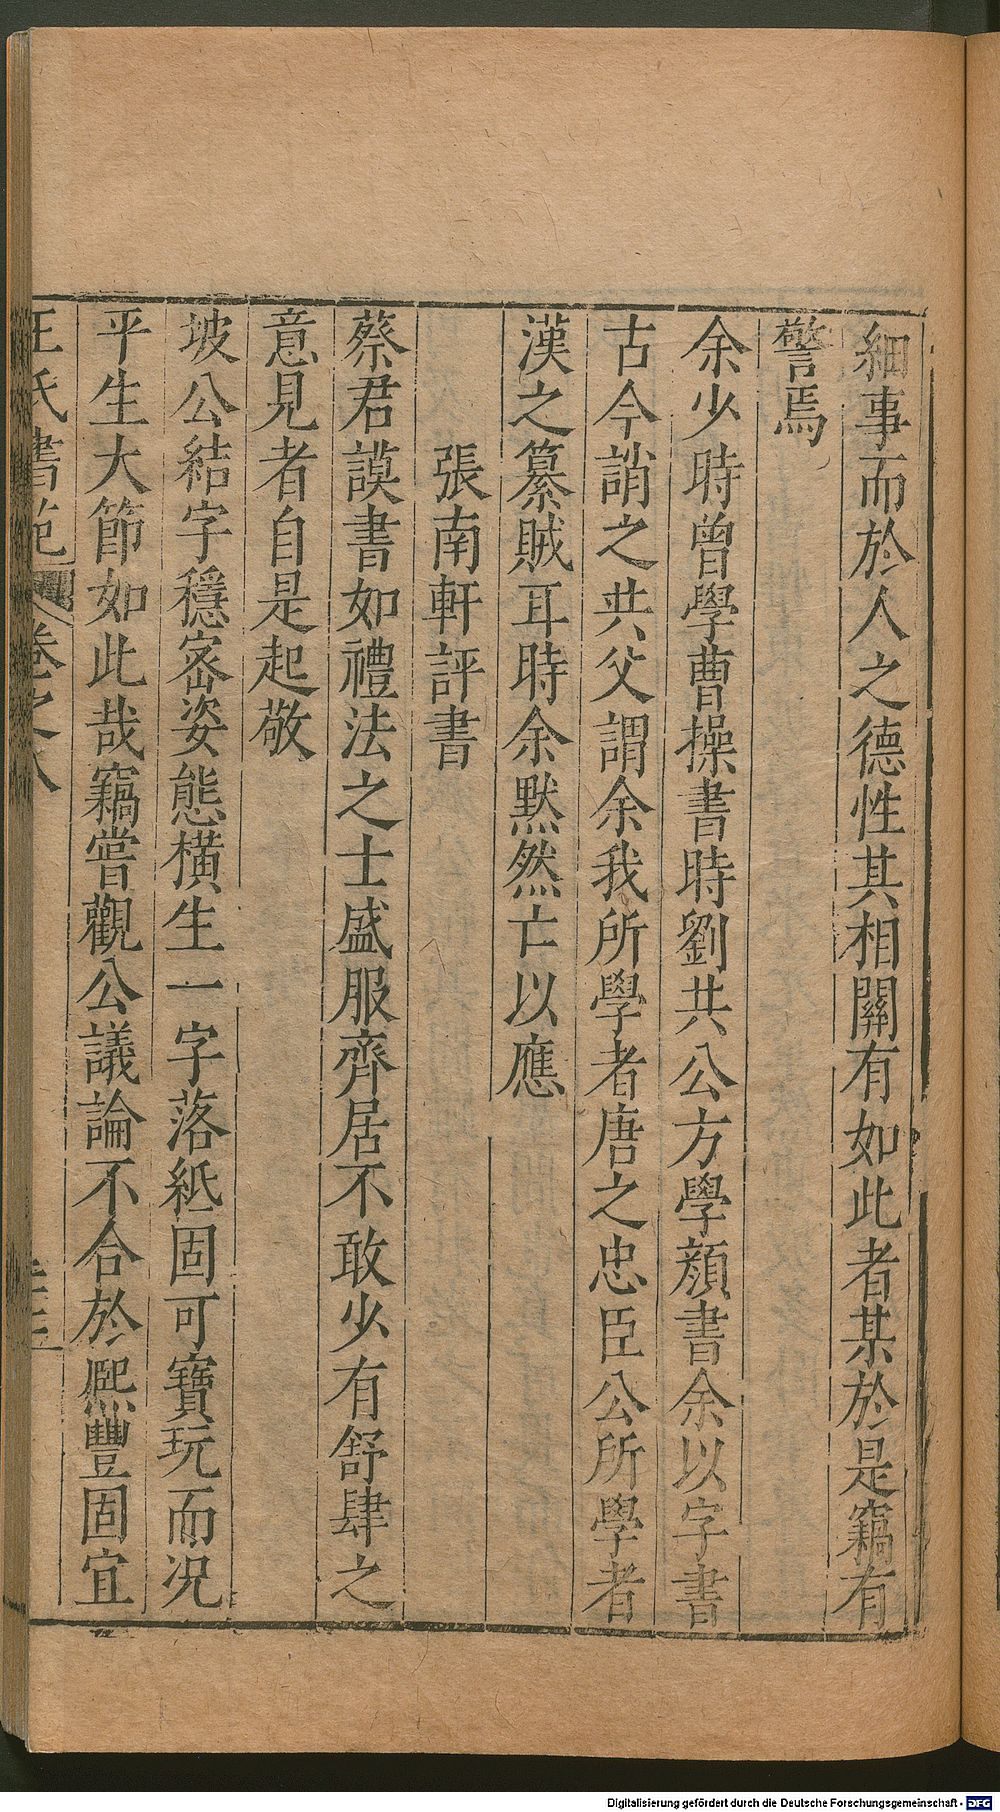 細事而於人之德性其相關有如此者某於是竊有
警焉
余少時曾學曹操書時劉共公方學顔書余以字書
古今誚之共父謂余我所學者唐之忠臣公所學者
漢之篡賊耳時余默然亡以應
張南軒評書
蔡君謨書如禮法之士盛服齊居不敢少有舒肆之
意見者自是起敬
坡公結字穩宻姿態橫生一字落紙固可寶玩而况
平生大節如此哉竊嘗觀公議論不合於熈豐固宜
王氏書苑 卷之八
Digitalisierung gefördert durch die Deutsche Forschungsgemeinschaft - DFG